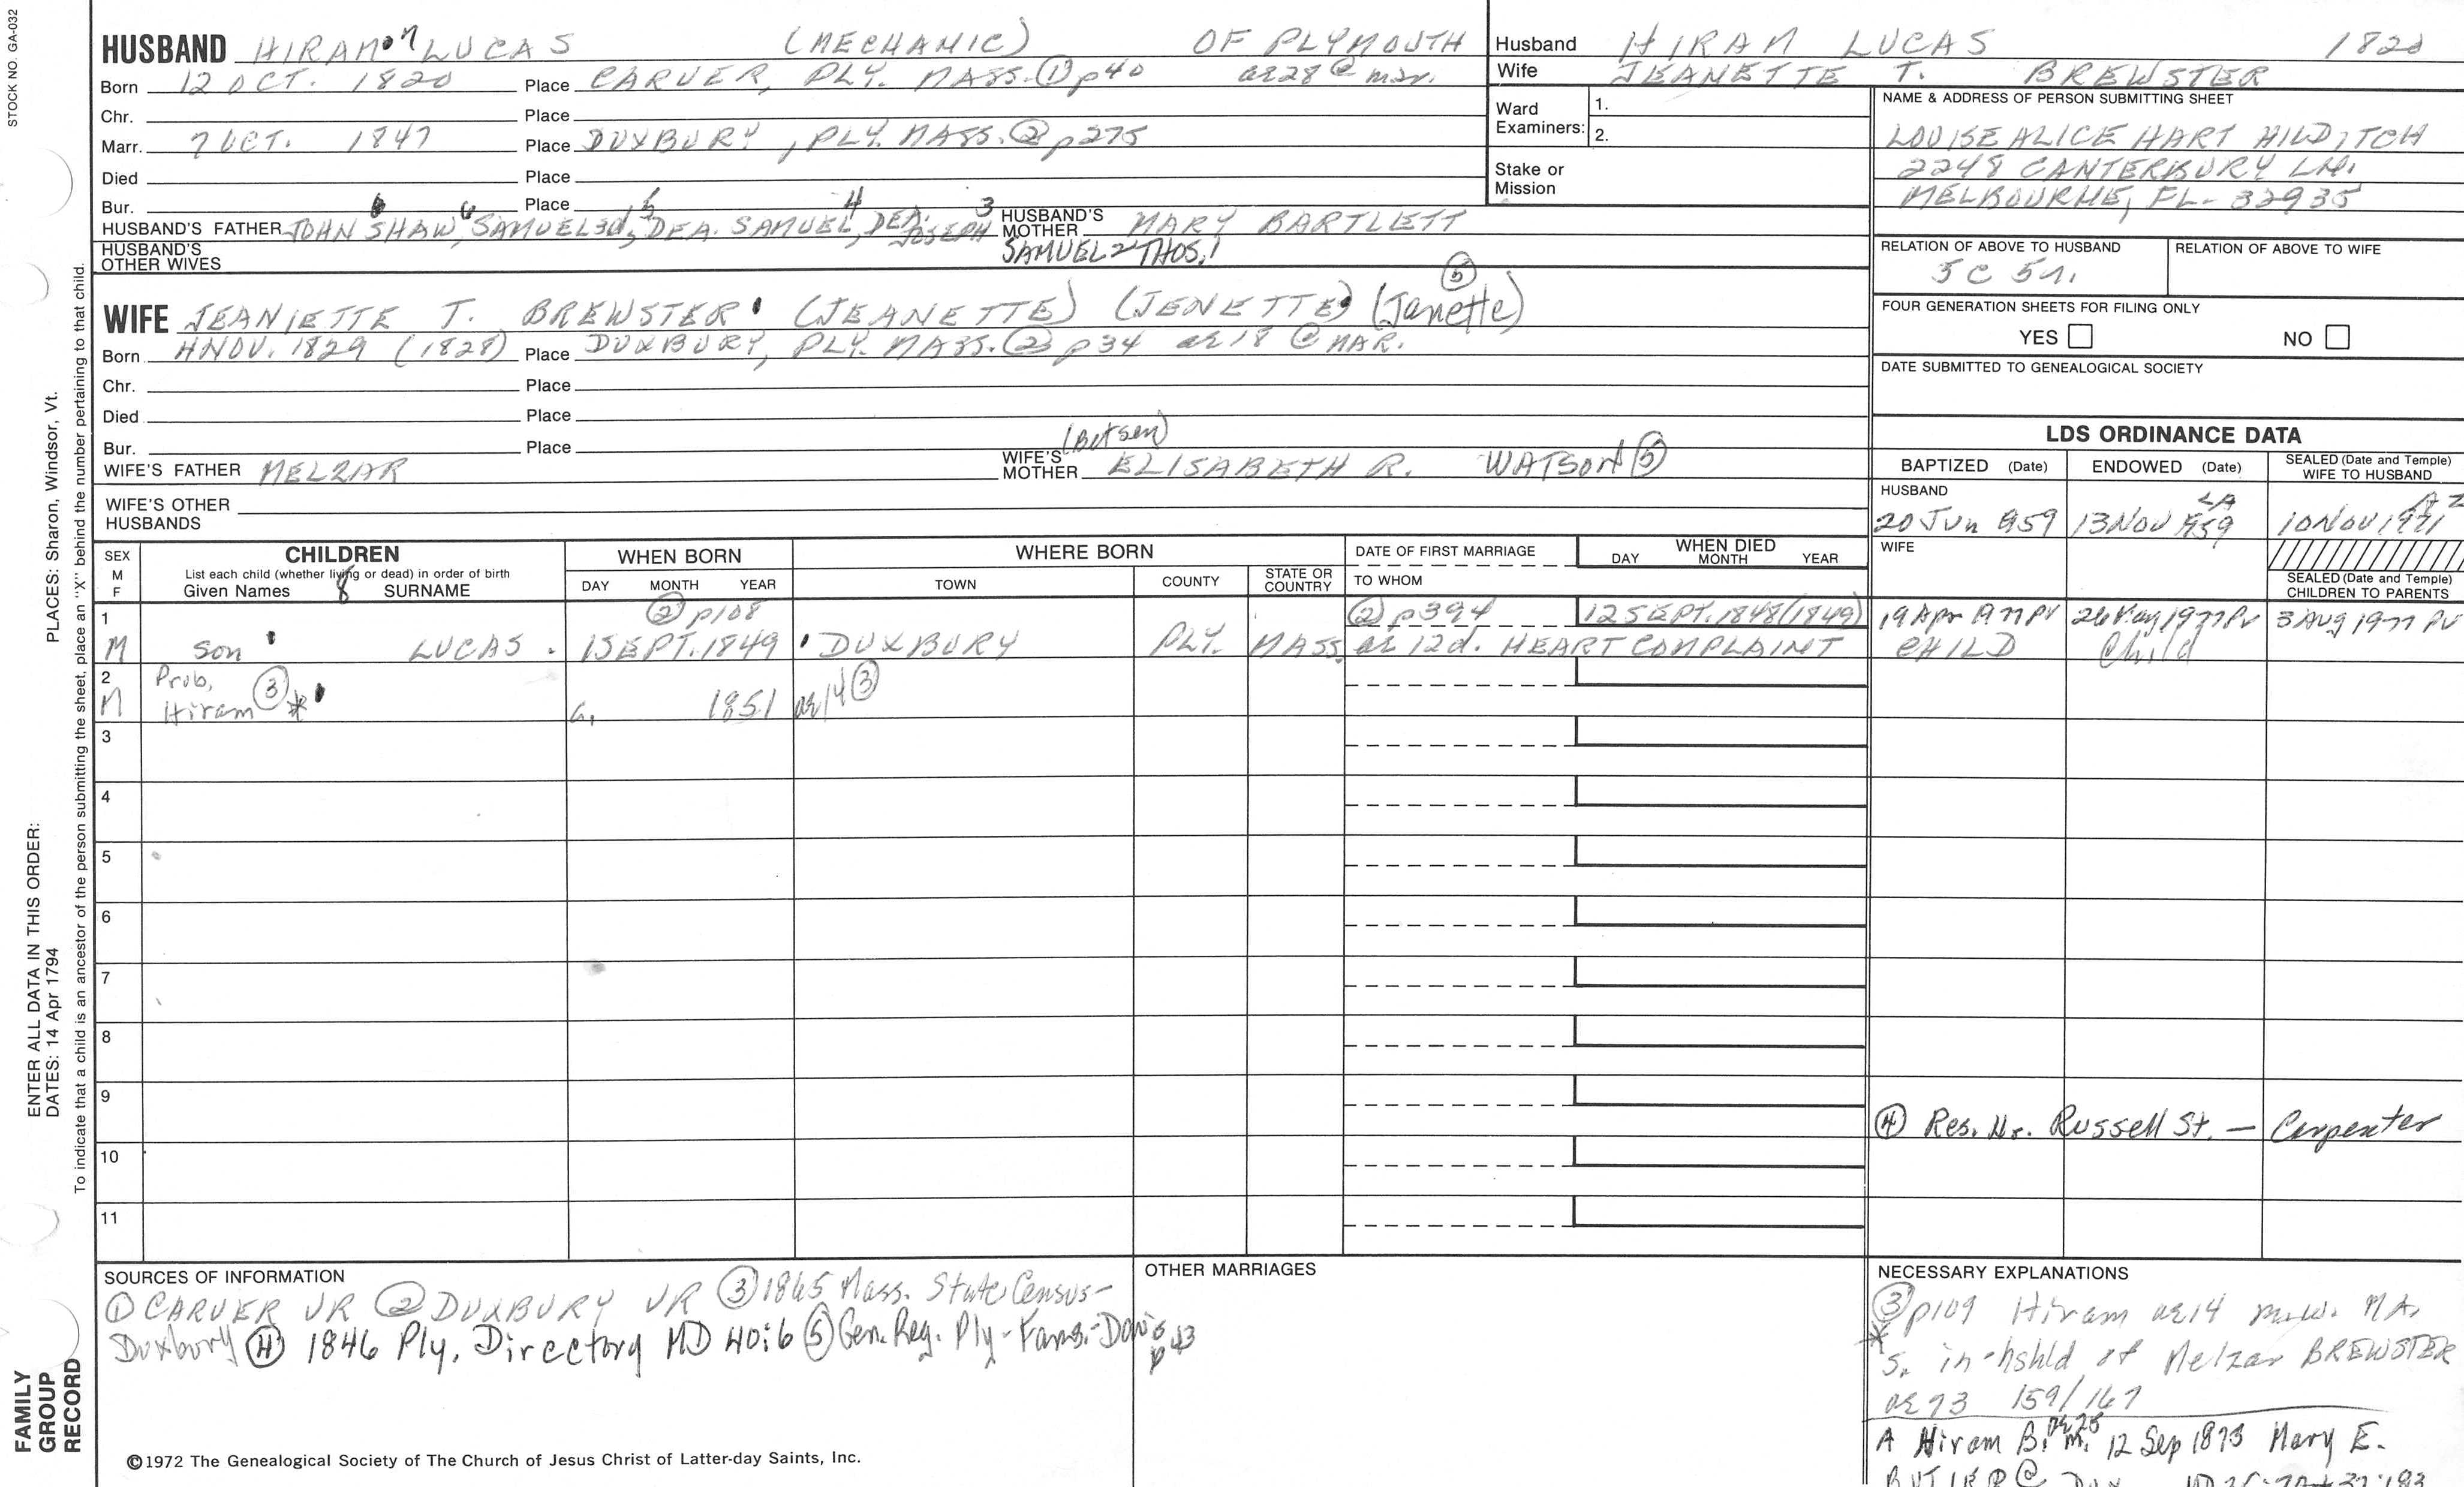 STOCK NO. GA-032
HUSBAND HIRAM 7 LUCAS (MECHANIC) OF PLYMOUTH
Born 12 OCT. 1820 Place CARVER, PLY. MASS. ① p40 ae28 @ mar.
Chr. Place
Marr. 7 OCT. 1847 Place DUXBURY, PLY. MASS. ② p275
Died Place
Bur. Place
6 5 4 3
HUSBAND'S FATHER JOHN SHAW, SAMUEL 3d, DEA. SAMUEL, DEA. JOSEPH HUSBAND'S MOTHER MARY BARTLETT
HUSBAND'S OTHER WIVES SAMUEL 2 THOS. 1
WIFE JEANIETTE T. BREWSTER (JEANETTE) (JENETTE) (Janette) ⑤
Born 4 NOV. 1829 (1828) Place DUXBURY, PLY. MASS. ② p34 ae 18 @ MAR.
Chr. Place
Died Place
Bur. Place
WIFE'S FATHER MELZAR WIFE'S MOTHER (Betsey) ELISABETH R. WATSON ⑤
WIFE'S OTHER HUSBANDS
Husband HIRAM LUCAS 1820
Wife JEANETTE T. BREWSTER
Ward Examiners: 1.
2.
Stake or Mission
NAME & ADDRESS OF PERSON SUBMITTING SHEET
LOUISE ALICE HART HILDITCH
2248 CANTERBURY LN.
MELBOURNE, FL- 32935
RELATION OF ABOVE TO HUSBAND RELATION OF ABOVE TO WIFE
5C 5r.
FOUR GENERATION SHEETS FOR FILING ONLY
YES NO
DATE SUBMITTED TO GENEALOGICAL SOCIETY
LDS ORDINANCE DATA
BAPTIZED (Date) ENDOWED (Date) SEALED (Date and Temple) WIFE TO HUSBAND
HUSBAND LA AZ
20 Jun 1959 13 Nov 1959 10 Nov 1971
WIFE
SEALED (Date and Temple) CHILDREN TO PARENTS
SEX M F CHILDREN WHEN BORN WHERE BORN DATE OF FIRST MARRIAGE WHEN DIED
List each child (whether living or dead) in order of birth
Given Names 8 SURNAME DAY MONTH YEAR TOWN COUNTY STATE OR COUNTRY TO WHOM DAY MONTH YEAR
1 ② p108 ② p394 12 SEPT. 1848 (1849) 19 Apr 1977 PV 26 May 1977 PV 3 Aug 1977 PV
M Son LUCAS 1 SEPT. 1849 DUXBURY PLY. MASS. ae 12d. HEART COMPLAINT CHILD Child
2 Prob.
M Hiram ③ * c. 1851 ae 14 ③
3
4
5
6
7
8
9
④ Res. Nr. Russell St. — Carpenter
10
11
SOURCES OF INFORMATION
① CARVER VR ② DUXBURY VR ③ 1865 Mass. State Census-
Duxbury ④ 1846 Ply. Directory MD 40:6 ⑤ Gen. Reg. Ply-Fams.-Davis
OTHER MARRIAGES
NECESSARY EXPLANATIONS
③ p109 Hiram ae 14 m.w. MA.
* S. in hshld of Melzar BREWSTER
ae 73 159/167
A Hiram B. ae 25 m. 12 Sep 1873 Mary E.
BUTLER @ Dux.
PLACES: Sharon, Windsor, Vt.
ENTER ALL DATA IN THIS ORDER:
DATES: 14 Apr 1794
To indicate that a child is an ancestor of the person submitting the sheet, place an "X" behind the number pertaining to that child.
FAMILY GROUP RECORD
©1972 The Genealogical Society of The Church of Jesus Christ of Latter-day Saints, Inc.